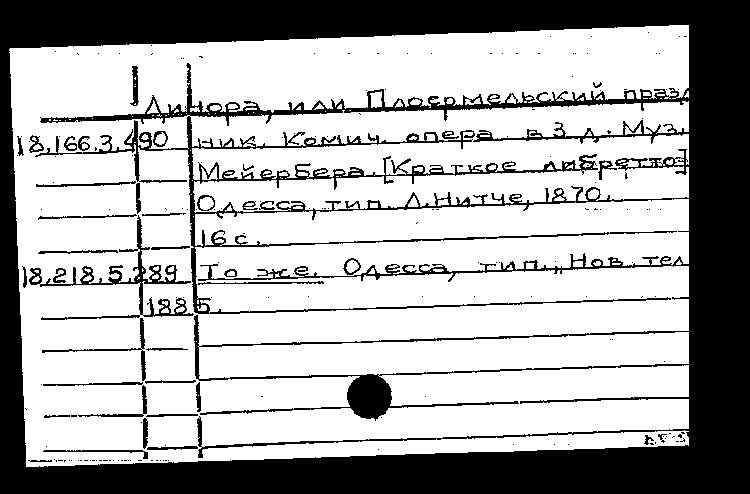 Динора, или Плоермельский празд
18.166.3.490 ник. Комич. опера в 3 д. Муз.
Мейербера. [Краткое либретто]
Одесса, тип. Л. Нитче, 1870.
16 с.
18.218.5.289 То же. Одесса, тип. „Нов. тел
1885.